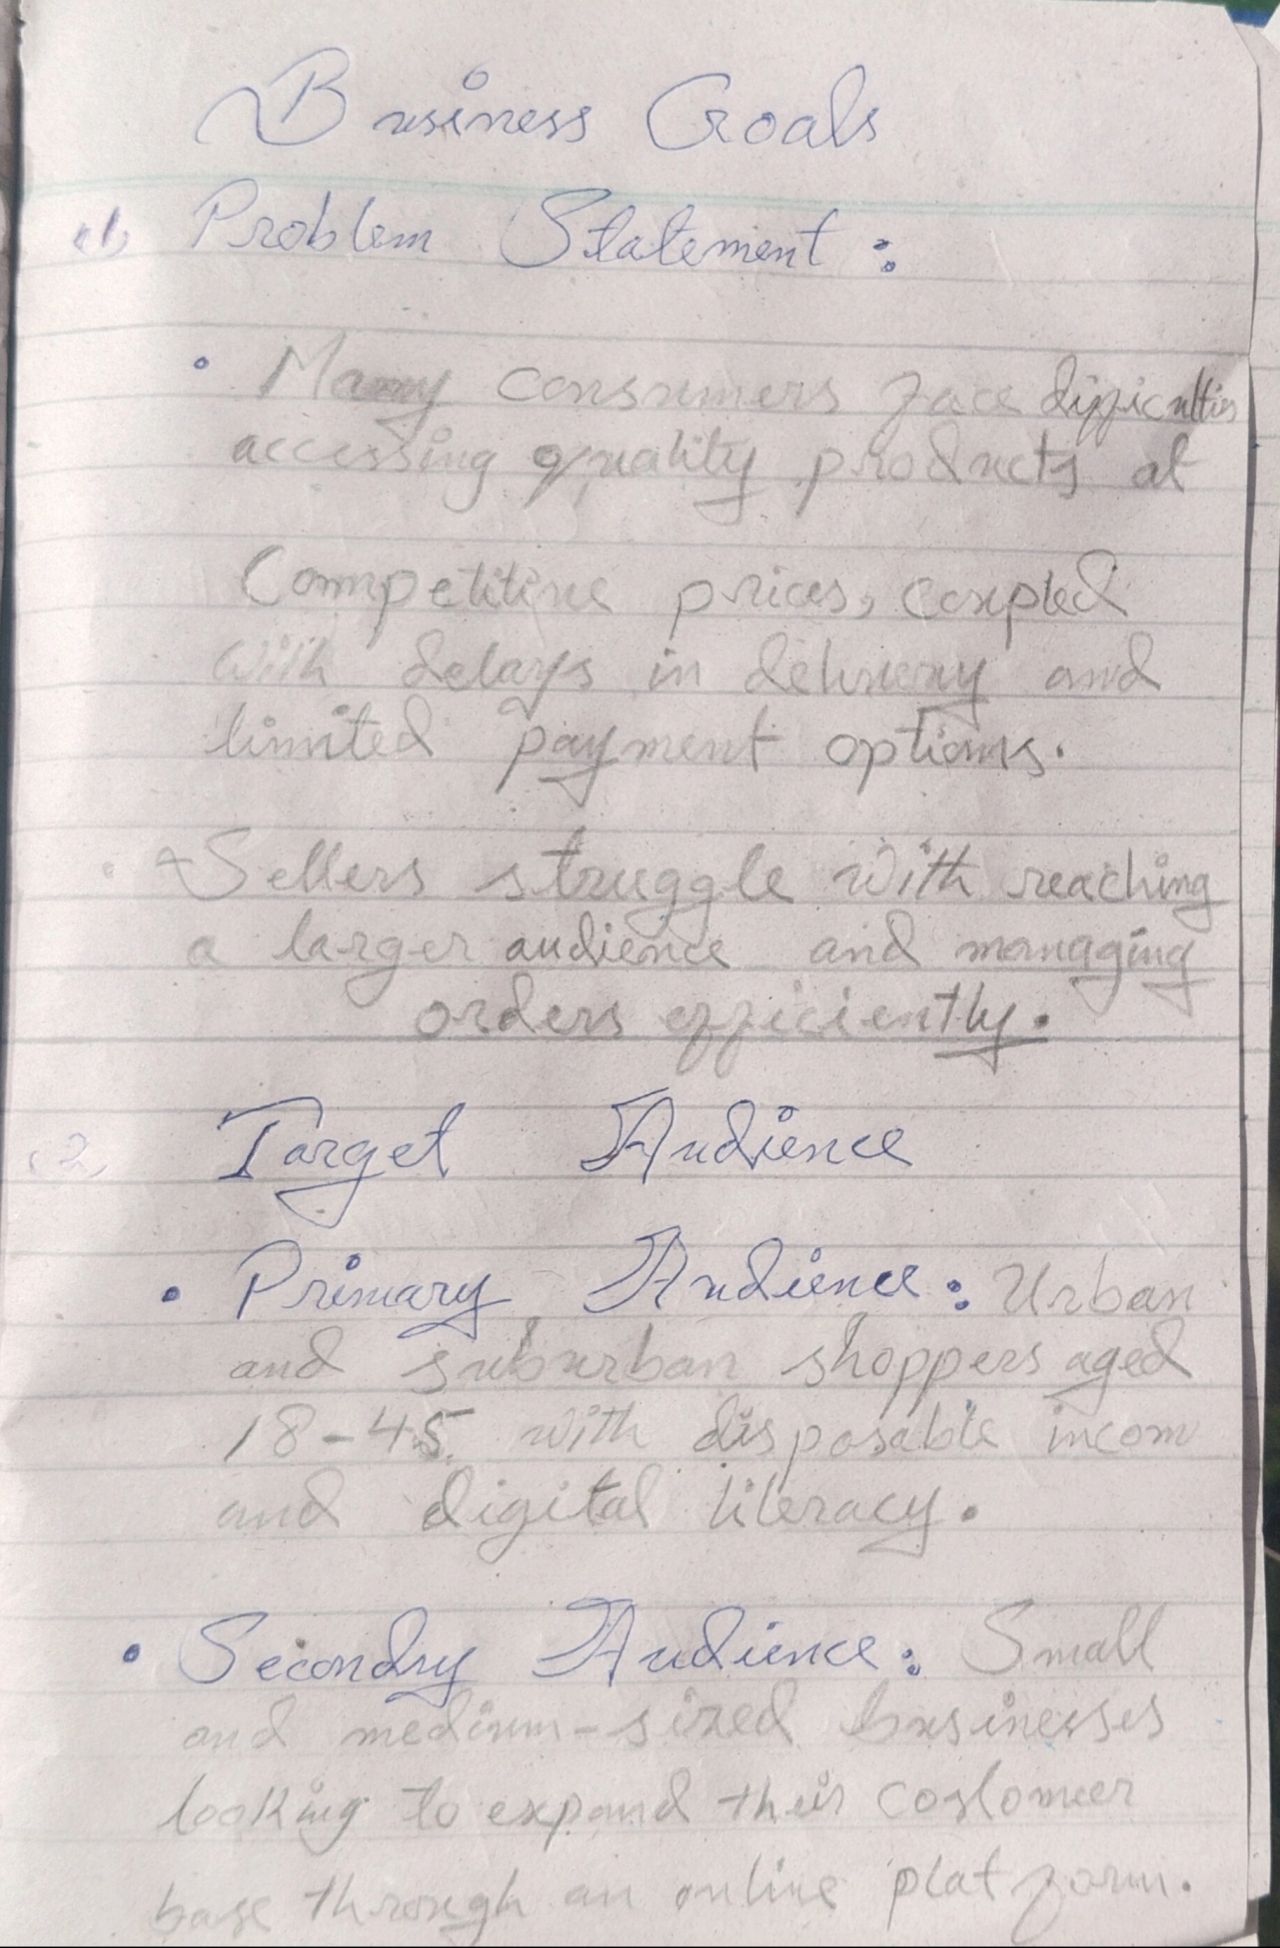 Business Goals
(1) Problem Statement :
• Many consumers face difficulties
accessing quality products at
Competitive prices, coupled
with delays in delivery and
limited payment options.
• Sellers struggle with reaching
a larger audience and managing
orders efficiently.
(2) Target Audience
• Primary Audience : Urban
and suburban shoppers aged
18-45 with disposable incom
and digital literacy.
• Secondry Audience : Small
and medium-sized businesses
looking to expand their costomer
base through an online platform.